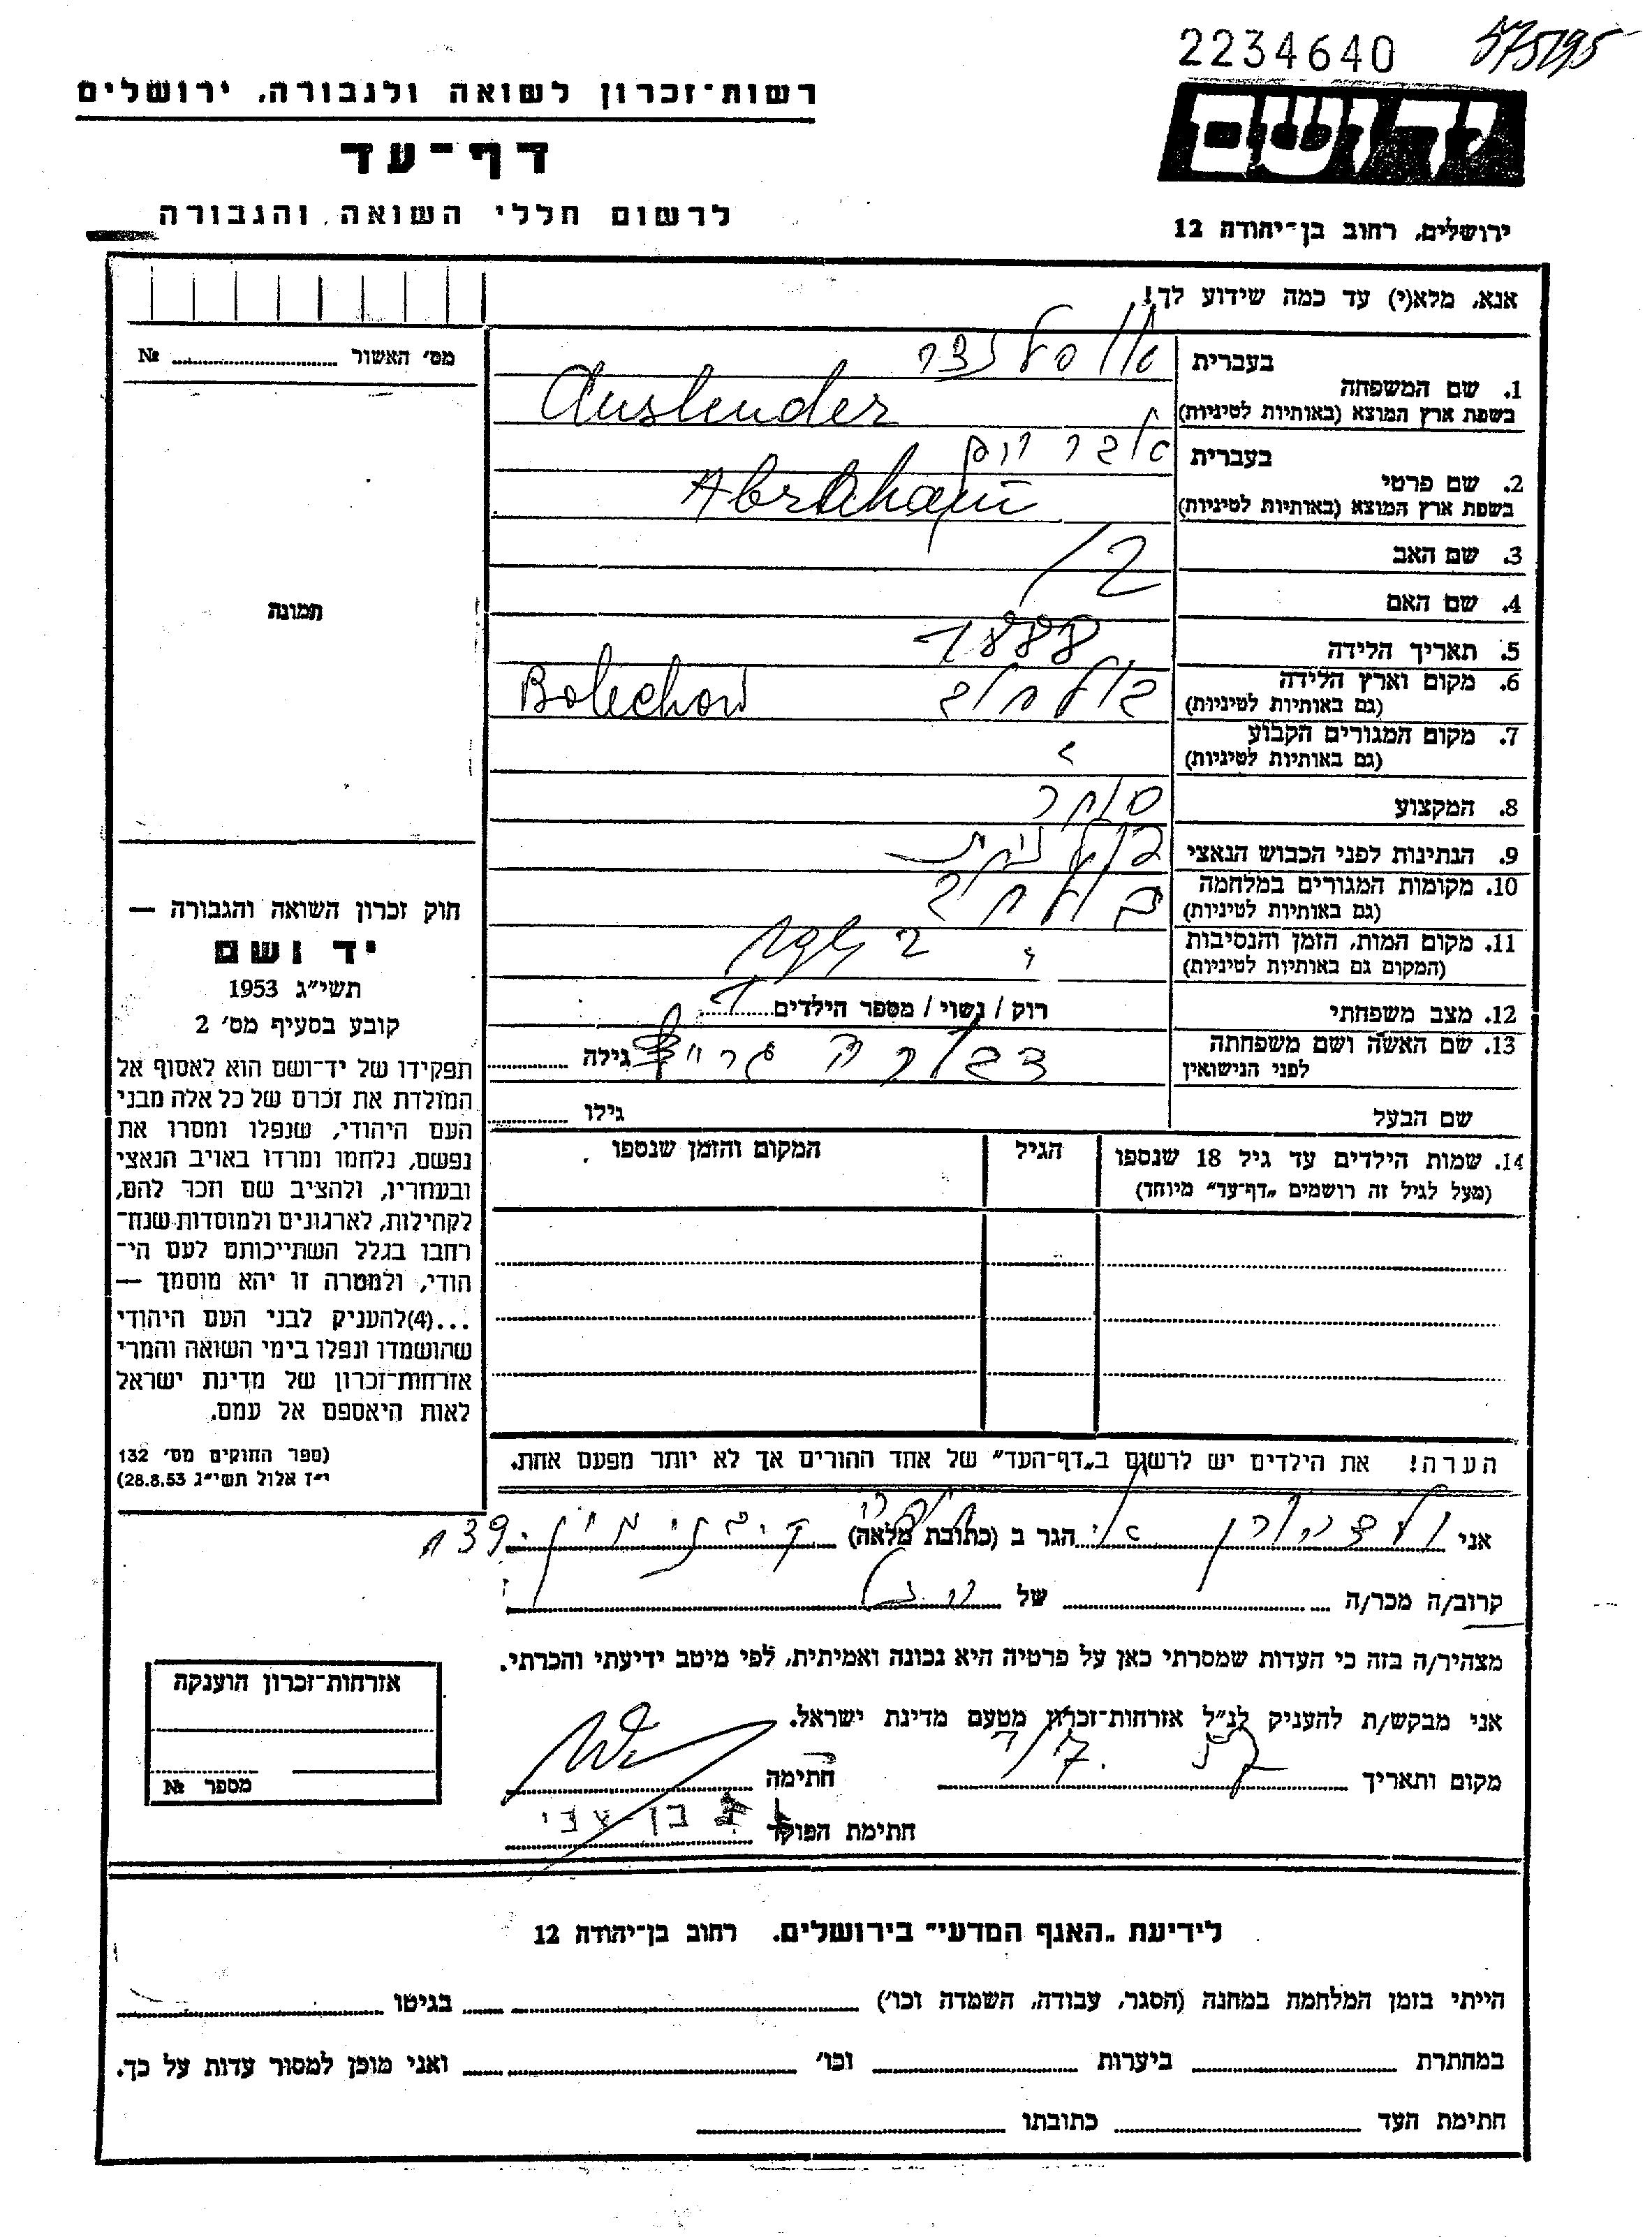 2234640
רשות־זכרון לשואה ולגבורה, ירושלים
דף־עד
לרשום חללי השואה והגבורה
יד ושם
ירושלים, רחוב בן־יהודה 12
אנא, מלא(י) עד כמה שידוע לך!
מס׳ האשור № 
1. שם המשפחה
בעברית אוסלנדר
בשפת ארץ המוצא (באותיות לטיניות) Auslender
2. שם פרטי
בעברית אברהם
בשפת ארץ המוצא (באותיות לטיניות) Abraham
3. שם האב
4. שם האם
5. תאריך הלידה 1888
6. מקום וארץ הלידה
(גם באותיות לטיניות) בולחוב Bolechow
7. מקום המגורים הקבוע
(גם באותיות לטיניות) "
8. המקצוע סוחר
9. הנתינות לפני הכבוש הנאצי פולנית
10. מקומות המגורים במלחמה
(גם באותיות לטיניות) בולחוב
11. מקום המות, הזמן והנסיבות
(המקום גם באותיות לטיניות) "
12. מצב משפחתי רוק / נשוי / מספר הילדים
13. שם האשה ושם משפחתה
לפני הנישואין דבורה גילה
שם הבעל גילו
14. שמות הילדים עד גיל 18 שנספו
(מעל לגיל זה רושמים „דף־עד" מיוחד)
הגיל
המקום והזמן שנספו
הערה! את הילדים יש לרשום ב„דף־העד" של אחד ההורים אך לא יותר מפעם אחת.
תמונה
חוק זכרון השואה והגבורה —
יד ושם
תשי״ג 1953
קובע בסעיף מס׳ 2
תפקידו של יד־ושם הוא לאסוף אל
המולדת את זכרם של כל אלה מבני
העם היהודי, שנפלו ומסרו את
נפשם, נלחמו ומרדו באויב הנאצי
ובעוזריו, ולהציב שם וזכר להם,
לקהילות, לארגונים ולמוסדות שנח־
רחבו בגלל השתייכותם לעם הי־
הודי, ולמטרה זו יהא מוסמך —
...(4)להעניק לבני העם היהודי
שהושמדו ונפלו בימי השואה והמרי
אזרחות־זכרון של מדינת ישראל
לאות היאספם אל עמם.
(ספר החוקים מס׳ 132
י״ז אלול תשי״ג 28.8.53)
אני הגר ב (כתובת מלאה)
קרוב/ה מכר/ה של
מצהיר/ה בזה כי העדות שמסרתי כאן על פרטיה היא נכונה ואמיתית, לפי מיטב ידיעתי והכרתי.
אני מבקש/ת להעניק לנ״ל אזרחות־זכרון מטעם מדינת ישראל.
מקום ותאריך חתימה
חתימת הפוקד בן־צבי
אזרחות־זכרון הוענקה
מספר №
לידיעת „האגף המדעי" בירושלים, רחוב בן־יהודה 12
הייתי בזמן המלחמה במחנה (הסגר, עבודה, השמדה וכו׳) בגיטו
במחתרת ביערות וכו׳ ואני מוכן למסור עדות על כך.
חתימת העד כתובתו